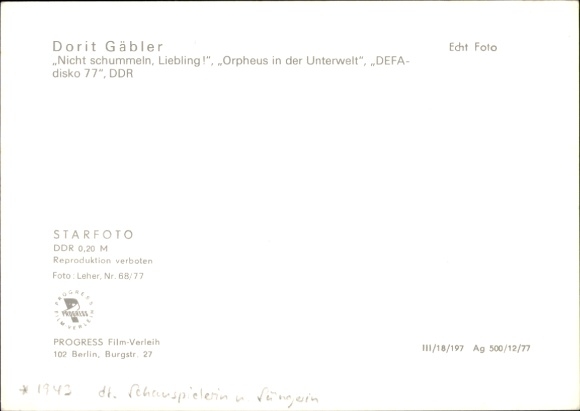 Dorit Gäbler
Echt Foto
„Nicht schummeln, Liebling!“, „Orpheus in der Unterwelt“, „DEFA-
disko 77“, DDR
STARFOTO
DDR 0,20 M
Reproduktion verboten
Foto: Leher, Nr. 68/77
PROGRESS
PROGRESS
FILM-VERLEIH
PROGRESS Film-Verleih
102 Berlin, Burgstr. 27
III/18/197 Ag 500/12/77
* 1943 dt. Schauspielerin u Sängerin